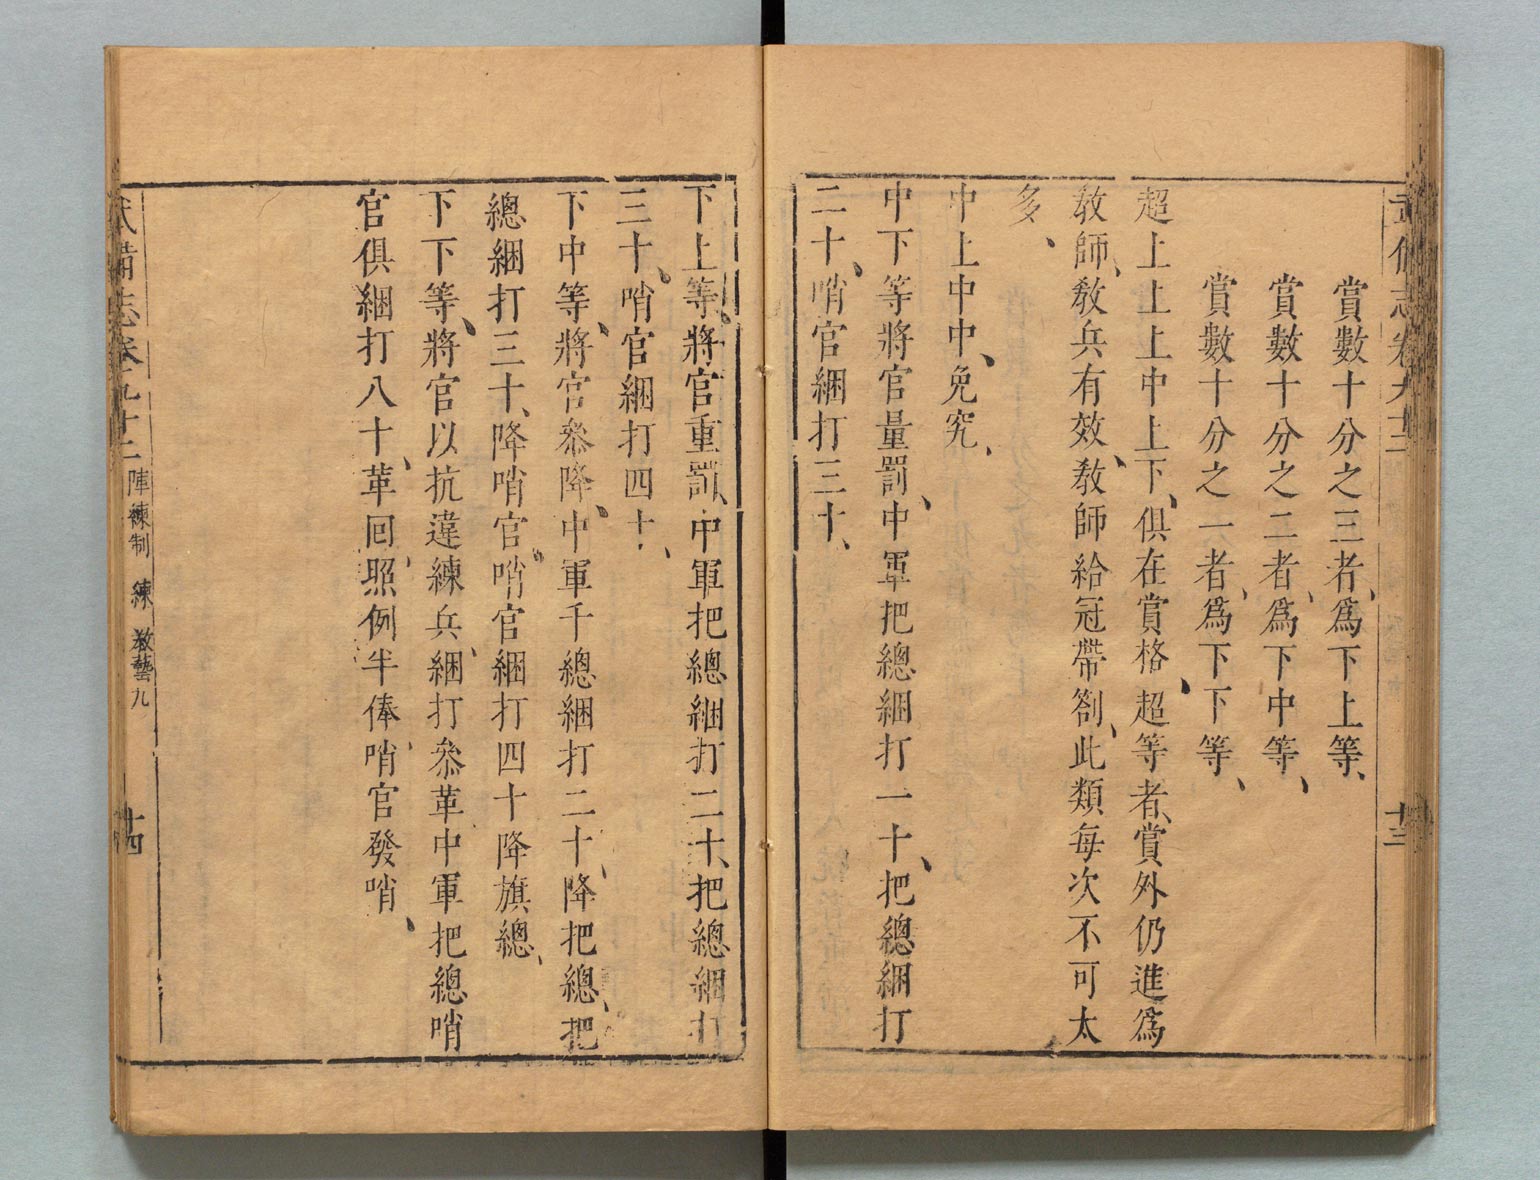 武備志卷九十二 十三
賞數十分之三者、爲下上等、
賞數十分之二者、爲下中等、
賞數十分之一者、爲下下等、
超上上上中上下、俱在賞格、超等者、賞外仍進爲
敎師、敎兵有效、敎師給冠帶劄、此類每次不可太
多、
中上中中、免究、
中下等將官量罰、中軍把總綑打一十、把總綑打
二十、哨官綑打三十、
下上等、將官重罰、中軍把總綑打二十、把總綑打
三十、哨官綑打四十、
下中等、將官叅降、中軍千總綑打二十、降把總、把
總綑打三十、降哨官、哨官綑打四十降旗總、
下下等、將官以抗違練兵、綑打叅革中軍把總哨
官俱綑打八十、革回、照例半俸、哨官發哨、
武備志卷九十二 陣練制 練 敎藝九 十四